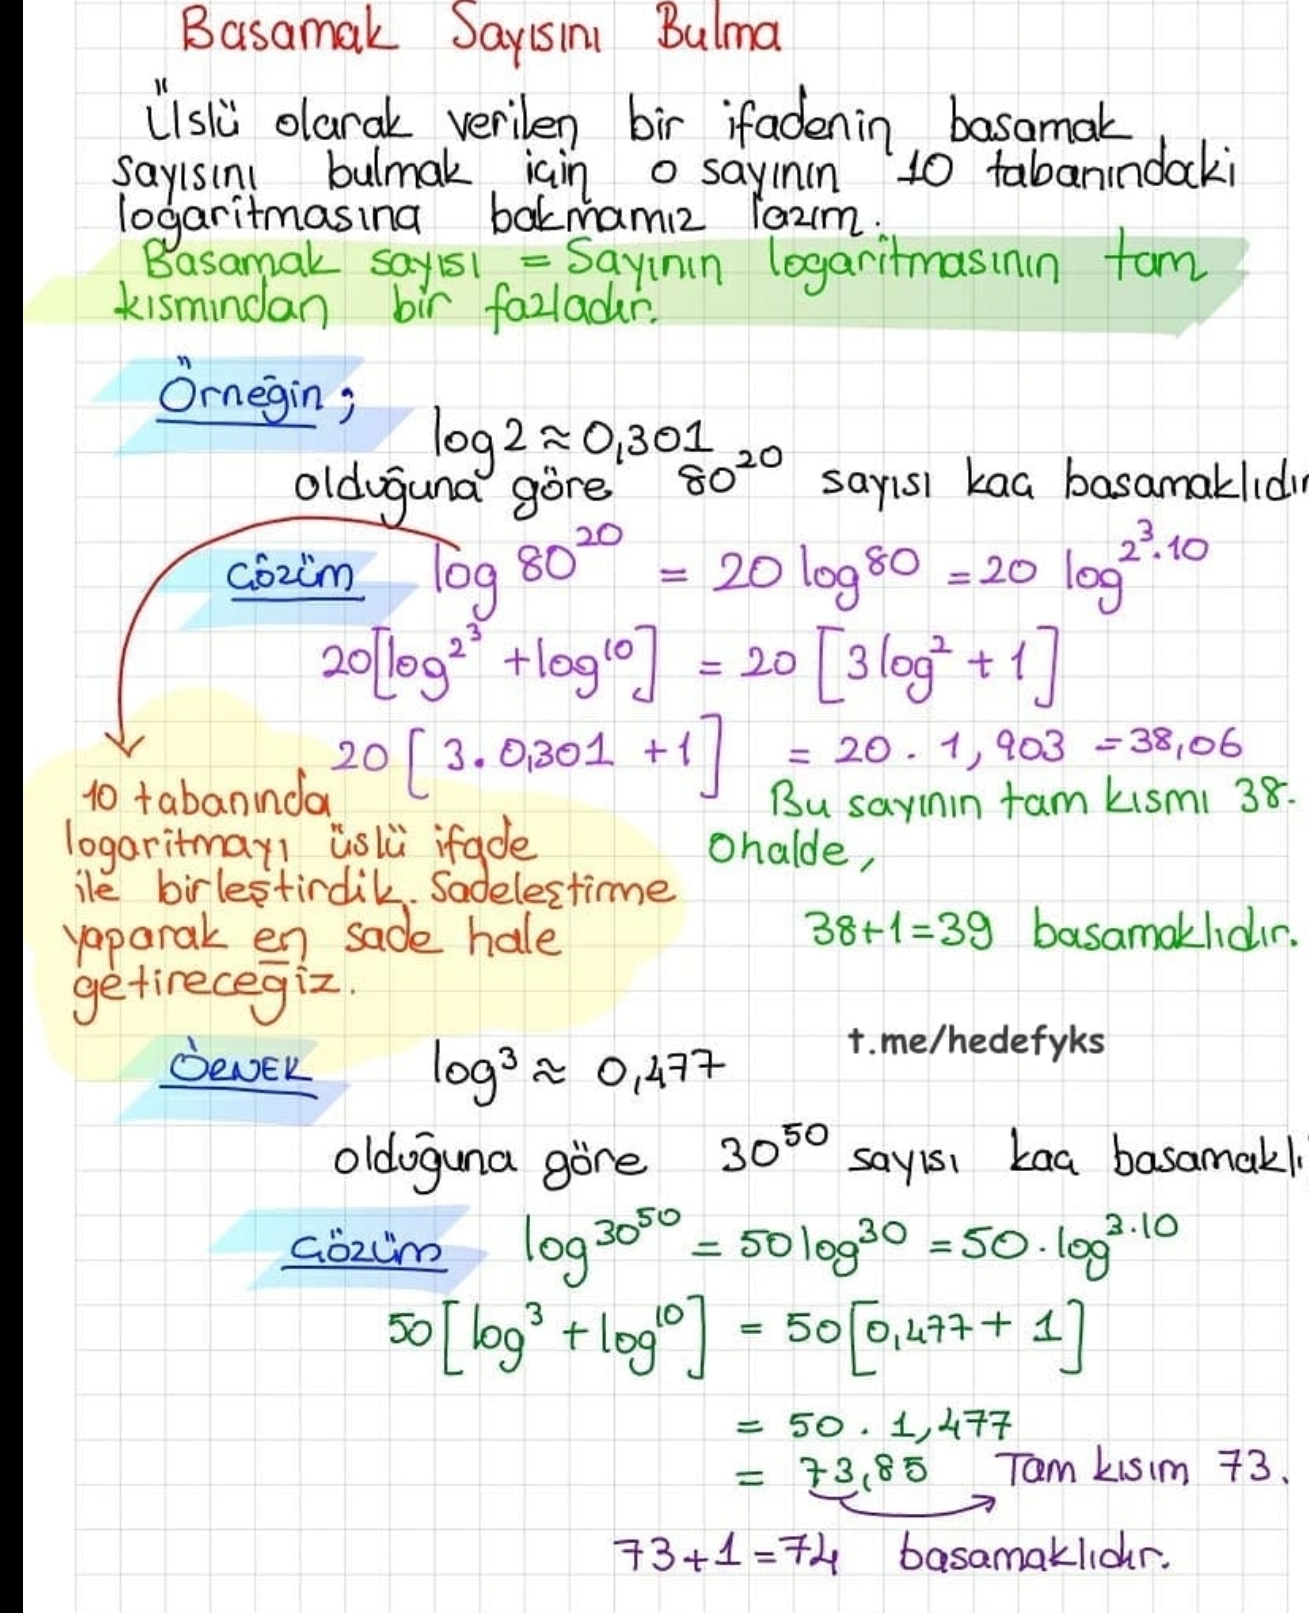 Basamak Sayısını Bulma
Üslü olarak verilen bir ifadenin basamak
sayısını bulmak için o sayının 10 tabanındaki
logaritmasına bakmamız lazım.
Basamak sayısı = Sayının logaritmasının tam
kısmından bir fazladır.
Örneğin;
log2 ≈ 0,301
olduğuna göre 80²⁰ sayısı kaç basamaklıdır
Çözüm log 80²⁰ = 20 log 80 = 20 log 2³.10
20[log 2³ + log 10] = 20 [3 log 2 + 1]
20 [3.0,301 + 1] = 20 . 1,903 = 38,06
10 tabanında
logaritmayı üslü ifade
ile birleştirdik. Sadeleştirme
yaparak en sade hale
getireceğiz.
Bu sayının tam kısmı 38.
Ohalde,
38+1=39 basamaklıdır.
t.me/hedefyks
ÖRNEK log 3 ≈ 0,477
olduğuna göre 30⁵⁰ sayısı kaç basamaklı
Çözüm log 30⁵⁰ = 50 log 30 = 50 . log 3.10
50 [log 3 + log 10] = 50 [0,477 + 1]
= 50 . 1,477
= 73,85 Tam kısım 73.
73+1=74 basamaklıdır.